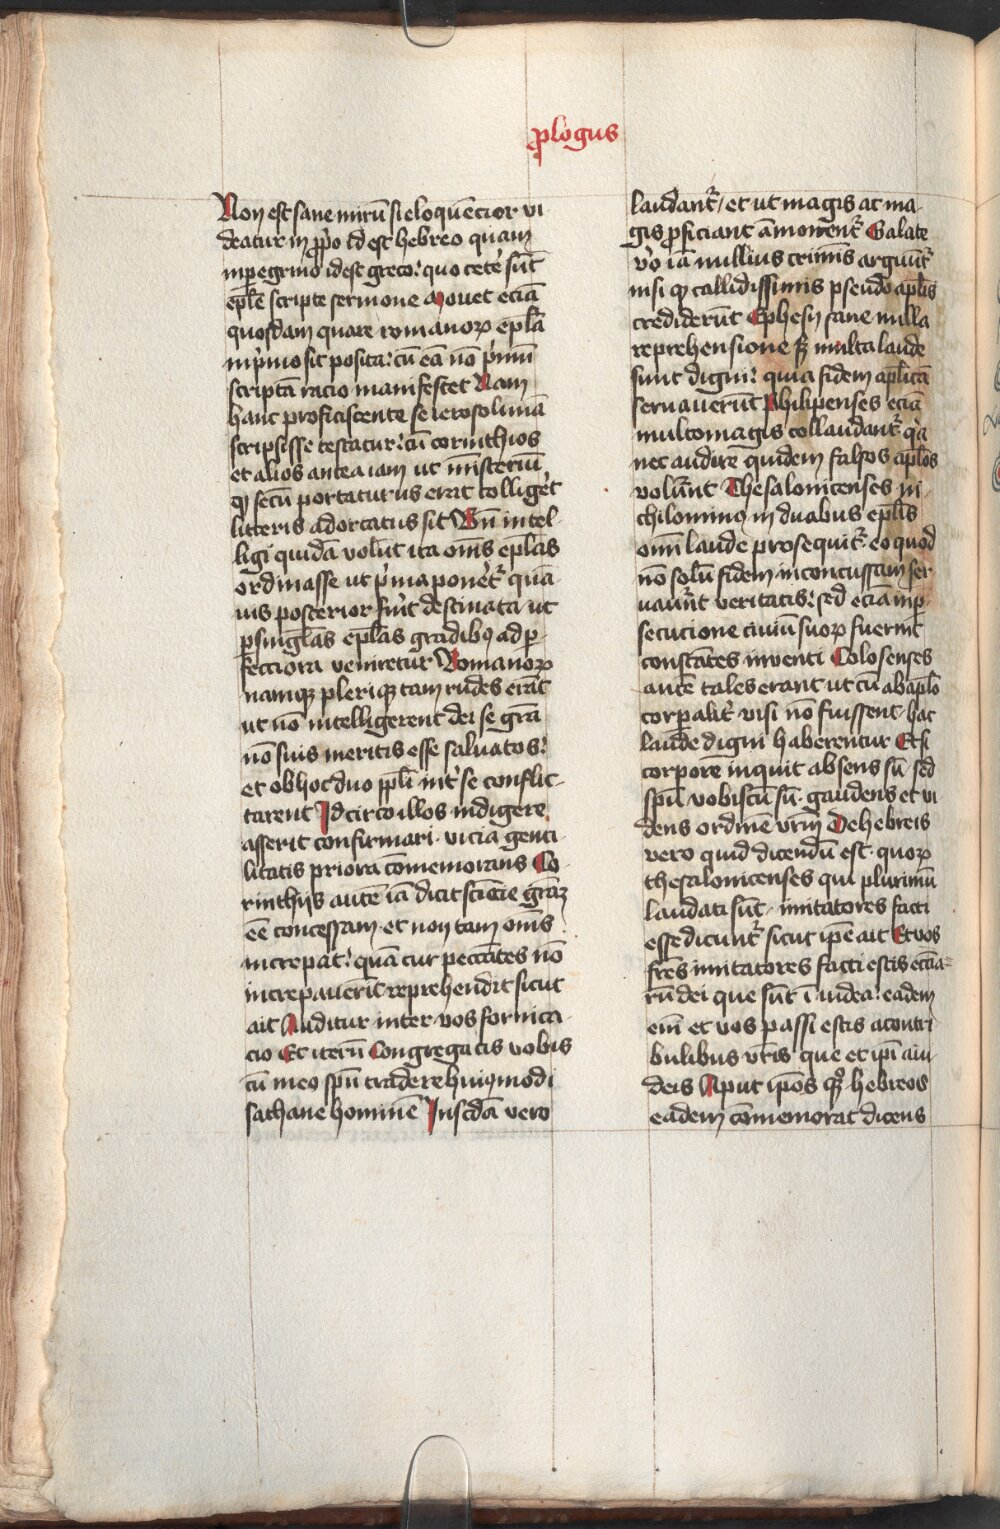 ꝓlogus
Non est sane mirū si eloquēcior vi
deatur in ꝓp̄o id est hebreo quam
in peregrino id est greco: quo ceteˀ sūt
ep̄le scripte sermone Mouet eciā
quosdam quare romanoꝝ ep̄la
in pˀmo sit posita: cū eā nō pˀmū
scriptā racio manifestet Nam
hanc proficiscente se ierosolimā
scripsisse testatur: cū corinthios
et alios antea iam ut misteriū
qd secū portaturus erat colligeˀt
litteris adortatus sit Vn̄ intel
ligi quidā volūt ita om̄s ep̄las
ordinasse ut pˀma ponēt᷑ quā
uis posterior fuˀit destinata ut
ꝑ singl̄as ep̄las gradibꝰ ad ꝑ
fectiora veniretur Romanoꝝ
namqꝫ pleriqꝫ tam rudes erāt
ut nō intelligerent dei se gr̄a
nō suis meritis esse saluatos:
et ob hoc duo pp̄li intˀ se conflic
tarent Idcirco illos indigere
asserit confirmari · vicia genti
litatis priora cōmemorans Co
rinthijs autē iā dicit sciēcie gr̄aꝫ
eē concessam · et non tam om̄s
increpat: quā cur peccātes nō
increpauerīt reprehendit sicut
ait Auditur inter vos fornica
cio Et iterū Congregatis vobis
cū meo sp̄u tradere huiꝰmodi
sathane hominē In scd̄a vero
laudant᷑ / et ut magis ac ma
gis ꝓficiant āmonent᷑ Galate
vˀo iā nullius criminis arguūt᷑
nisi qd callidissimis pseudo ap̄lis
crediderūt Ephesij sane nulla
reprehensione sꝫ multa laude
sunt digni: quia fidem ap̄licā
seruauerūt Philipenses eciā
multomagis collaudant᷑ qˀa
nec audire quidem falsos ap̄los
volūnt Thesalonicenses ni
chilominꝰ in duabus ep̄lis
om̄i laude prosequit᷑ · eo quod
nō solū fidem inconcussam ser
uauˀnt veritatis: sed eciā in ꝑ
secucione ciuiū suoꝝ fuerint
constātes inventi Colosenses
autē tales erant ut cū ab ap̄lo
corꝑalitˀ visi nō fuissent · hac
laude digni haberentur Et si
corpore inquit absens sū sed
sp̄u vobiscū sū · gaudens et vi
dens ordinē vrm̄ De hebreis
vero quid dicendū est · quoꝝ
thesalonicenses qui plurimū
laudati sūt · imitatores facti
esse dicunt᷑ sicut ip̄e ait Et vos
fr̄es imitatores facti estis eccīa
rū dei que sūt ī iudea: eadem
em̄ et vos passi estis a contri
bulibus vr̄is que et ip̄i a iu
deis Aput ip̄os qꝫ hebreos
eadem cōmemorat dicens